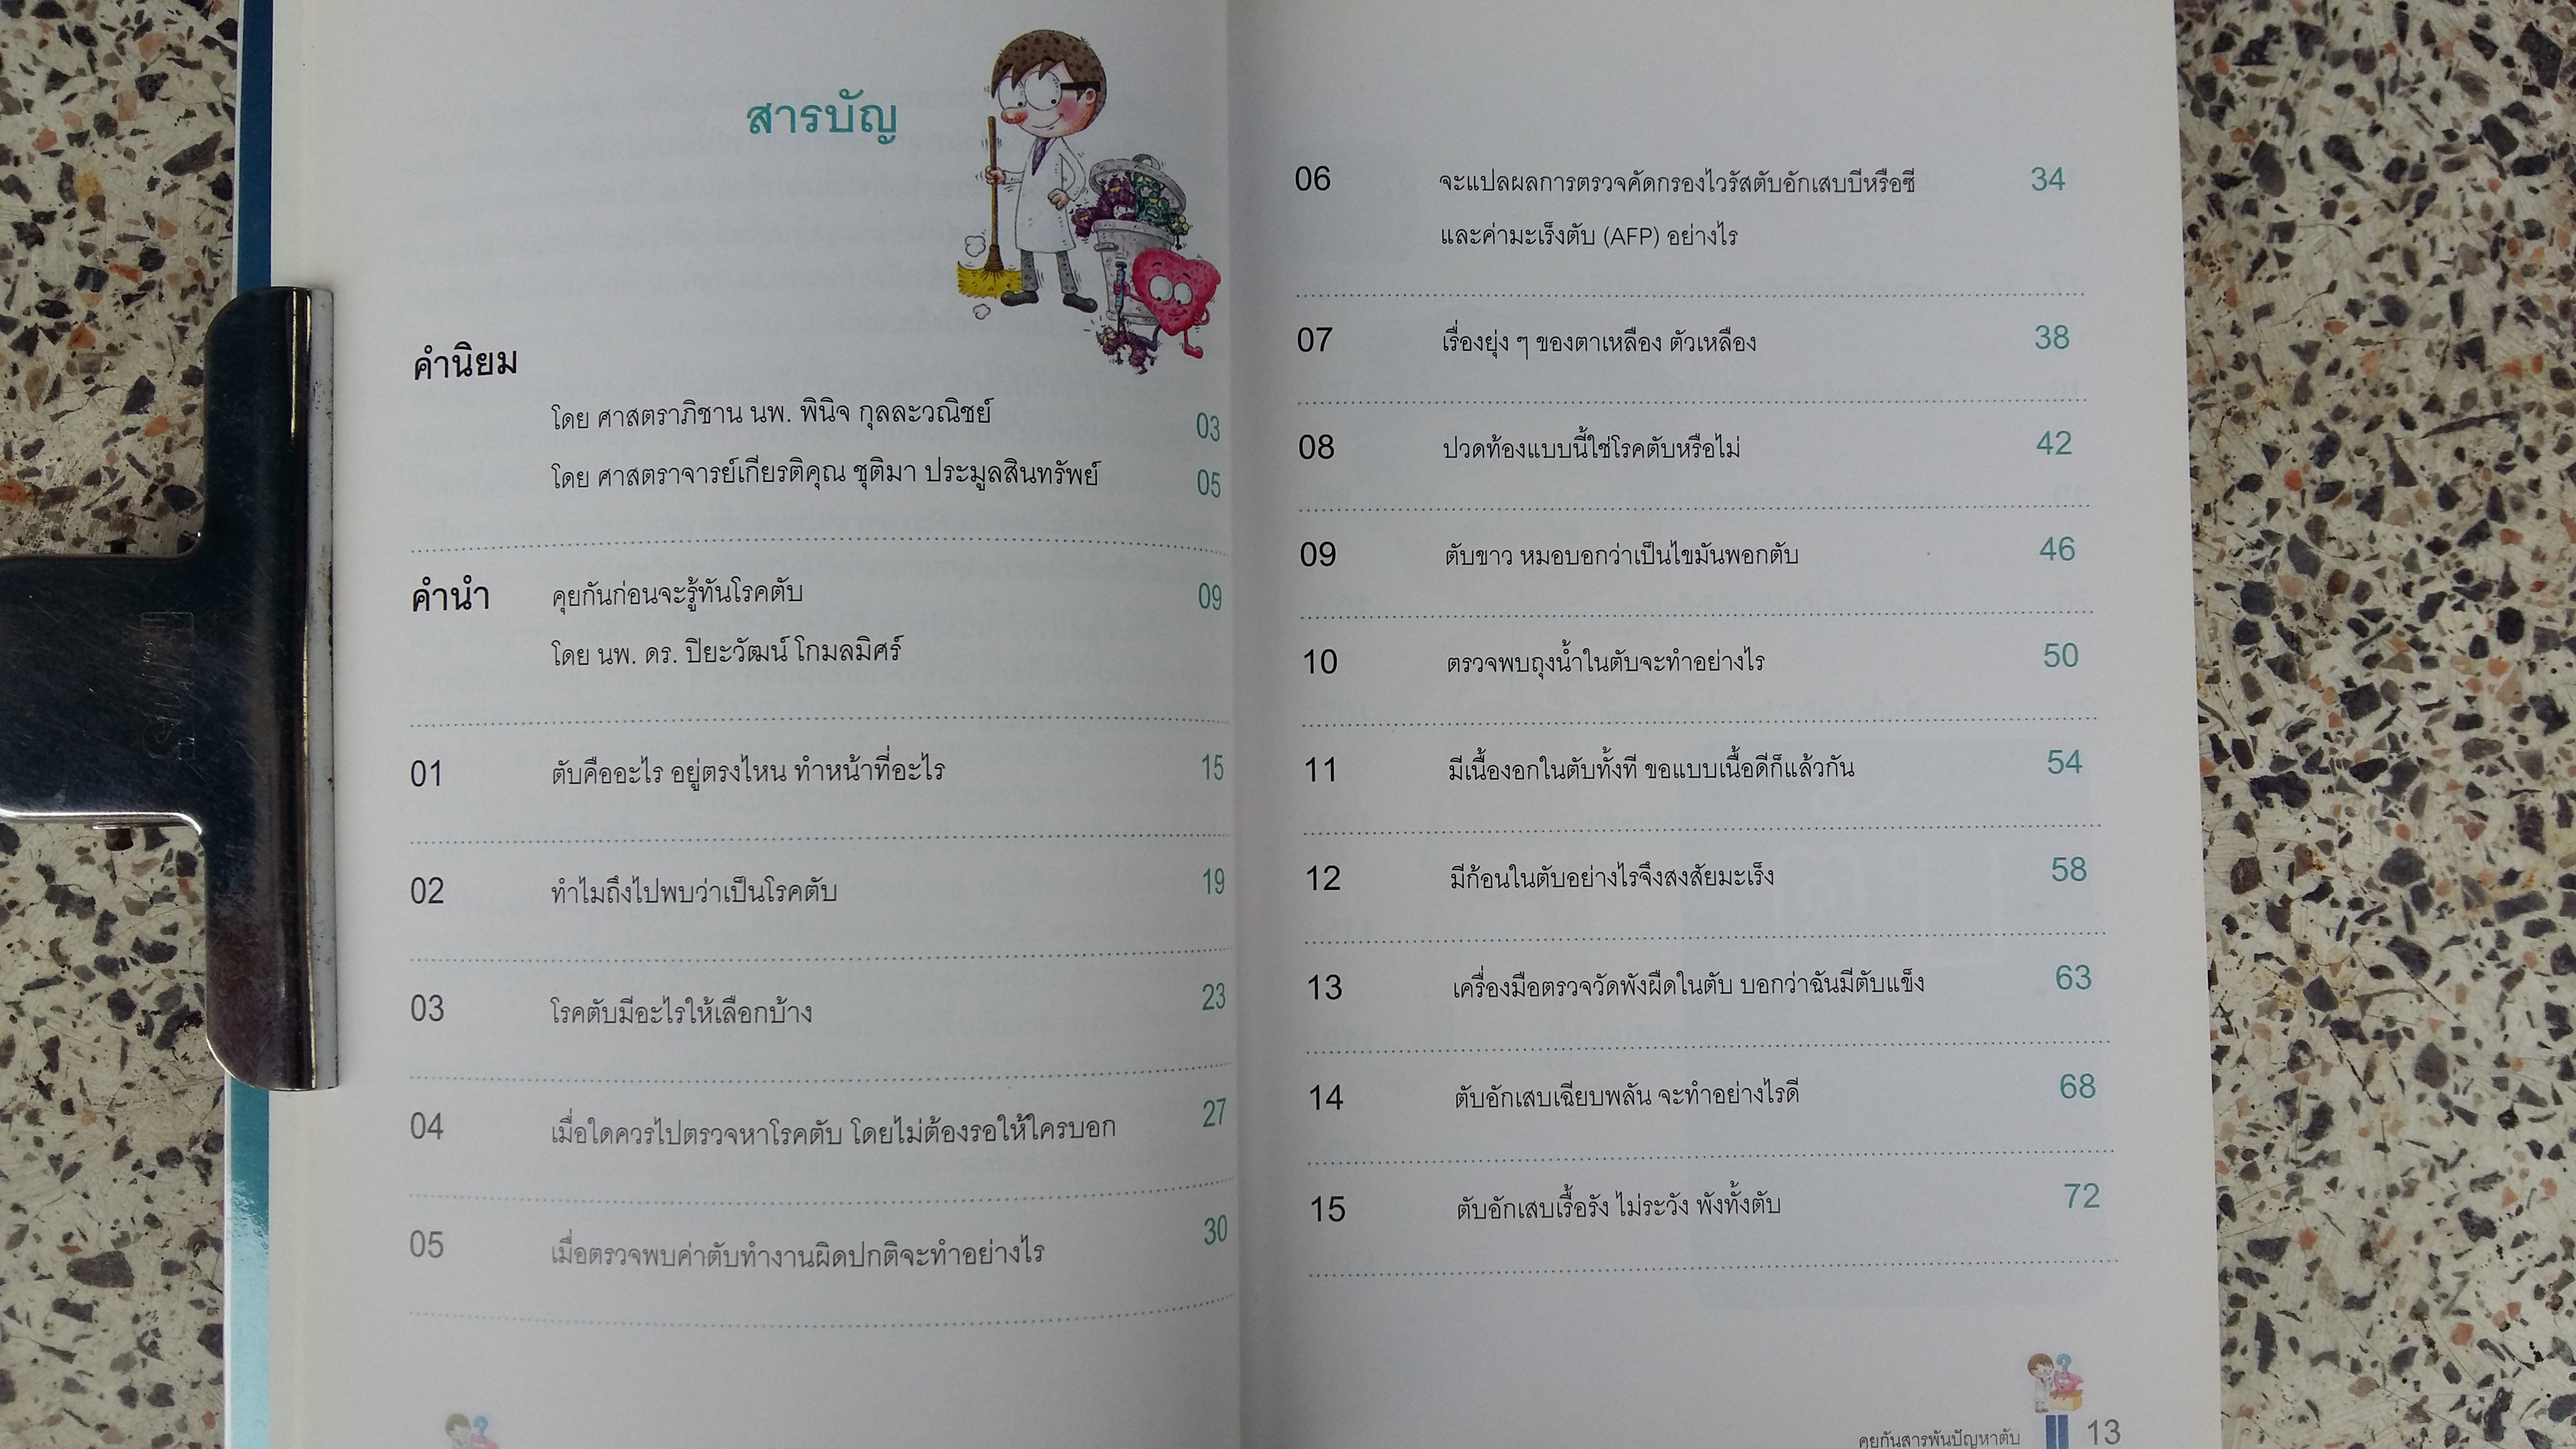 สารบัญ
คำนิยม
โดย ศาสตราภิชาน นพ. พินิจ กุลละวณิชย์ 03
โดย ศาสตราจารย์เกียรติคุณ ชุติมา ประมูลสินทรัพย์ 05
คำนำ คุยกันก่อนจะรู้ทันโรคตับ 09
โดย นพ. ดร. ปิยะวัฒน์ โกมลมิศร์
01 ตับคืออะไร อยู่ตรงไหน ทำหน้าที่อะไร 15
02 ทำไมถึงไปพบว่าเป็นโรคตับ 19
03 โรคตับมีอะไรให้เลือกบ้าง 23
04 เมื่อใดควรไปตรวจหาโรคตับ โดยไม่ต้องรอให้ใครบอก 27
05 เมื่อตรวจพบค่าตับทำงานผิดปกติจะทำอย่างไร 30
06 จะแปลผลการตรวจคัดกรองไวรัสตับอักเสบบีหรือซี 34
และค่ามะเร็งตับ (AFP) อย่างไร
07 เรื่องยุ่ง ๆ ของตาเหลือง ตัวเหลือง 38
08 ปวดท้องแบบนี้ใช่โรคตับหรือไม่ 42
09 ตับขาว หมอบอกว่าเป็นไขมันพอกตับ 46
10 ตรวจพบถุงน้ำในตับจะทำอย่างไร 50
11 มีเนื้องอกในตับทั้งที ขอแบบเนื้อดีก็แล้วกัน 54
12 มีก้อนในตับอย่างไรจึงสงสัยมะเร็ง 58
13 เครื่องมือตรวจวัดพังผืดในตับ บอกว่าฉันมีตับแข็ง 63
14 ตับอักเสบเฉียบพลัน จะทำอย่างไรดี 68
15 ตับอักเสบเรื้อรัง ไม่ระวัง พังทั้งตับ 72
คุยกันสารพันปัญหาตับ 13